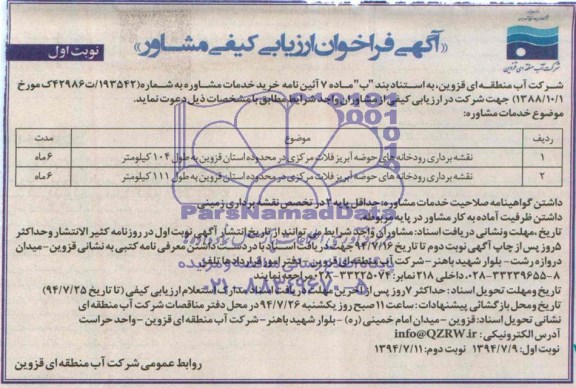 شرکت آب منطقه ای قزوین
«آگهی فراخوان ارزیابی کیفی مشاور»
نوبت اول
شرکت آب منطقه ای قزوین، به استناد بند "ب" ماده ۷ آئین نامه خرید خدمات مشاوره به شماره (۱۹۳۵۴۲/ت۴۲۹۸۶ک مورخ
۱۳۸۸/۱۰/۱) جهت شرکت در ارزیابی کیفی از مشاوران واجد شرایط مطابق با مشخصات ذیل دعوت نماید.
موضوع خدمات مشاوره:
ردیف موضوع مدت
۱ نقشه برداری رودخانه های حوضه آبریز فلات مرکزی در محدوده استان قزوین به طول ۱۰۴ کیلومتر ۶ ماه
۲ نقشه برداری رودخانه های حوضه آبریز فلات مرکزی در محدوده استان قزوین به طول ۱۱۱ کیلومتر ۶ ماه
داشتن گواهینامه صلاحیت خدمات مشاوره: حداقل پایه ۳ در تخصص نقشه برداری زمینی
داشتن ظرفیت آماده به کار مشاور در پایه مربوطه
تاریخ، مهلت ونشانی دریافت اسناد: مشاوران واجد شرایط می توانند از تاریخ انتشار آگهی نوبت اول در روزنامه کثیر الانتشار وحداکثر
۵ روز پس از چاپ آگهی نوبت دوم تا تاریخ ۹۴/۷/۱۶ جهت دریافت اسناد با در دست داشتن معرفی نامه کتبی به نشانی قزوین - میدان
دروازه رشت - بلوار شهید باهنر - شرکت آب منطقه ای قزوین - دفتر امور قراردادها تلفن
۸-۳۳۲۳۹۶۵۵-۰۲۸ داخلی ۲۱۸ نمابر: ۳۳۲۲۵۰۷۴-۰۲۸ مراجعه نمایند.
تاریخ ومهلت تحویل اسناد: حداکثر ۷ روز پس از آخرین مهلت دریافت اسناد مدارک استعلام ارزیابی کیفی (تا تاریخ ۹۴/۷/۲۵)
تاریخ ومحل بازگشائی پیشنهادات: ساعت ۱۱ صبح روز یکشنبه ۹۴/۷/۲۶ در محل دفتر مناقصات شرکت آب منطقه ای
نشانی تحویل اسناد: قزوین - میدان امام خمینی (ره) - بلوار شهید باهنر - شرکت آب منطقه ای قزوین - واحد حراست
آدرس الکترونیکی: info@QZRW.ir
نوبت اول: ۱۳۹۴/۷/۹ نوبت دوم: ۱۳۹۴/۷/۱۱
روابط عمومی شرکت آب منطقه ای قزوین
ParsNamadData
۰۲۱-۸۸۳۴۹۶۷۰-۵